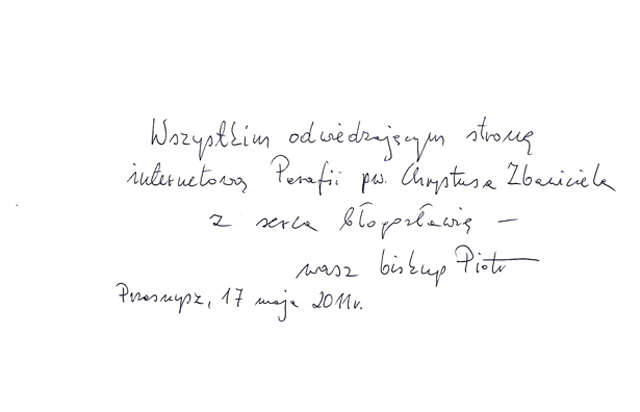 Wszystkim odwiedzającym stronę
internetową Parafii pw. Chrystusa Zbawiciela
z serca błogosławię –
wasz biskup Piotr
Przasnysz, 17 maja 2011r.